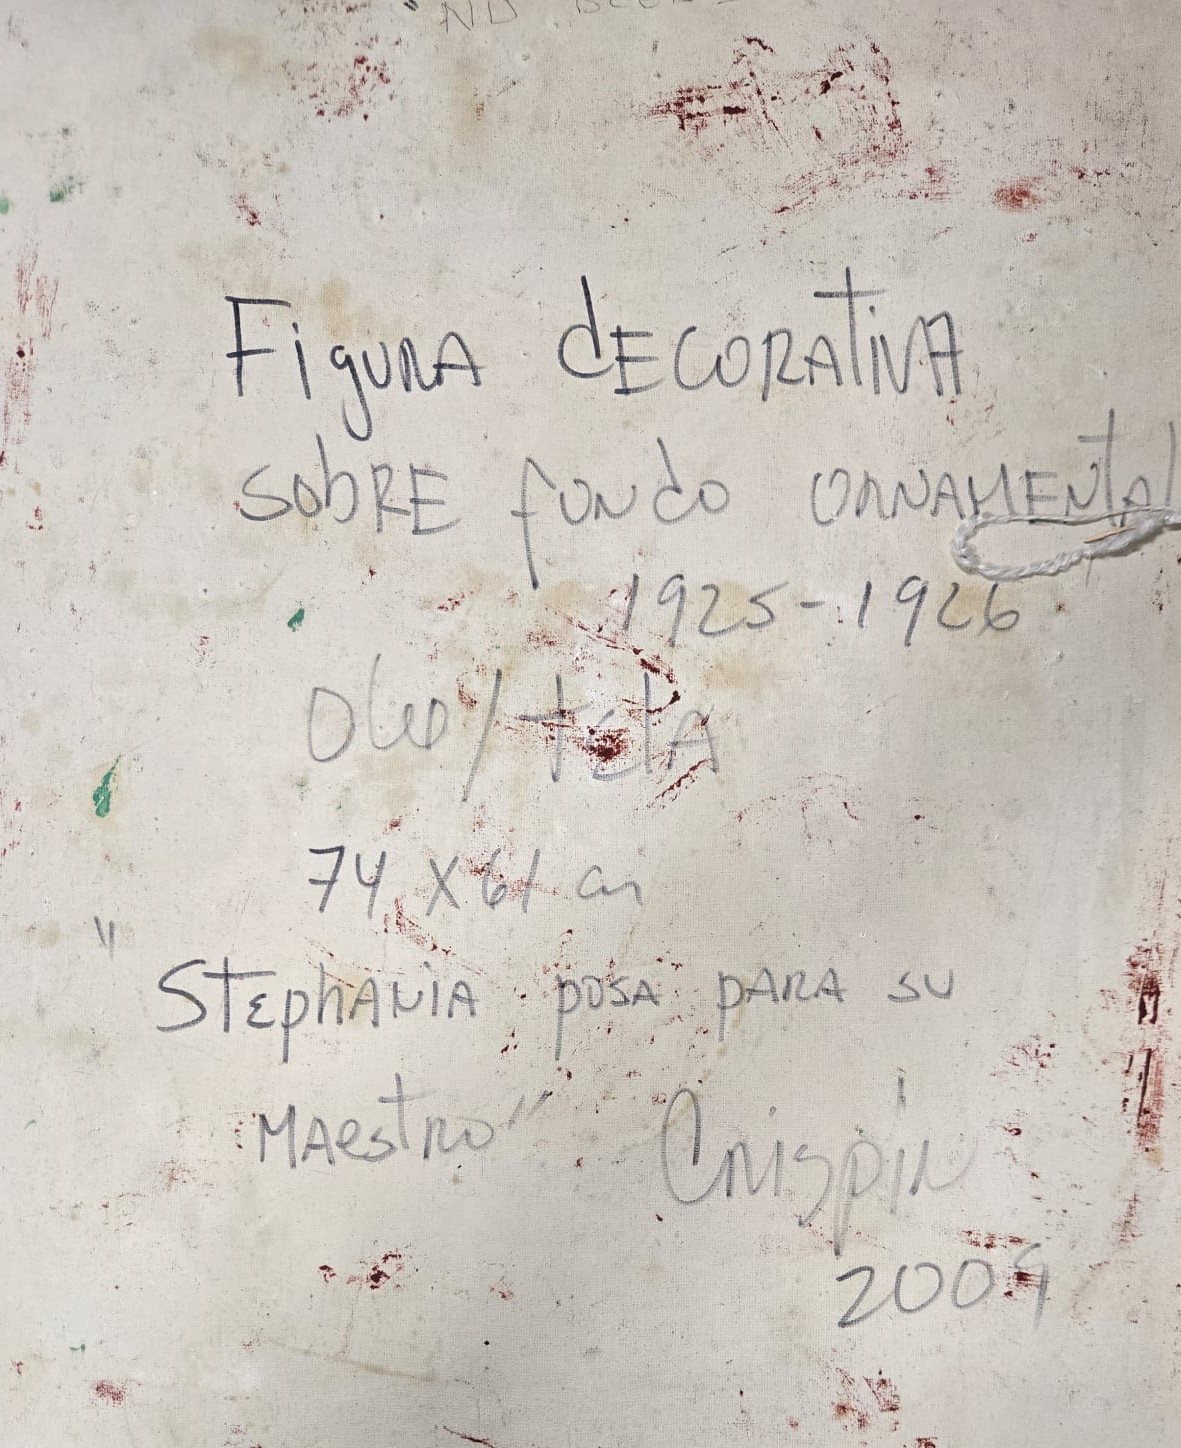 Figura decorativa
sobre fondo ornamental
1925-1926
Oleo/tela
74 x 61 cm
"Stephania posa para su
Maestro" Crispin
2009